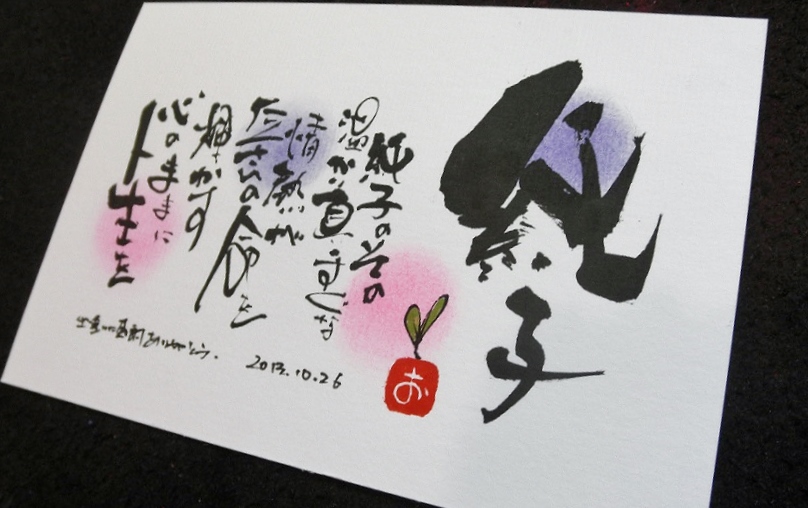 純子
純子のその
温か真すぐな
情熱が
たくさんの命を
輝かす
心のままに
人生を
ありがとう.
2013.10.26
お